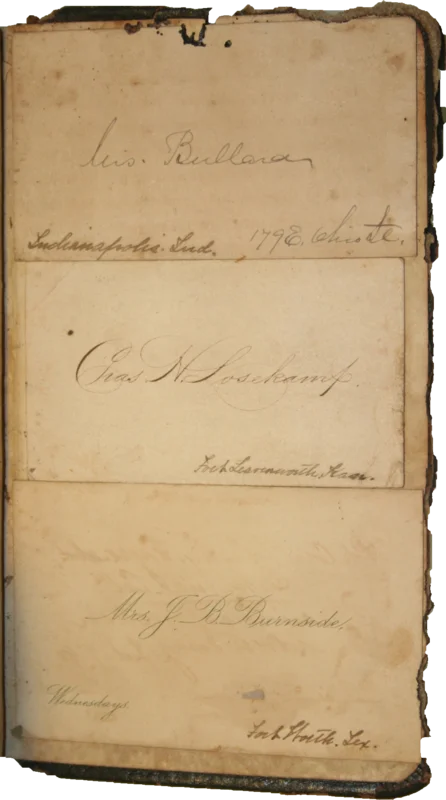 Mrs. Bullard
Indianapolis. Ind. 179 E. Ohio St.
Chas. H. Losekamp.
Fort Leavenworth, Kans.
Mrs. J. B. Burnside.
Wednesdays.
Fort Worth. Tex.